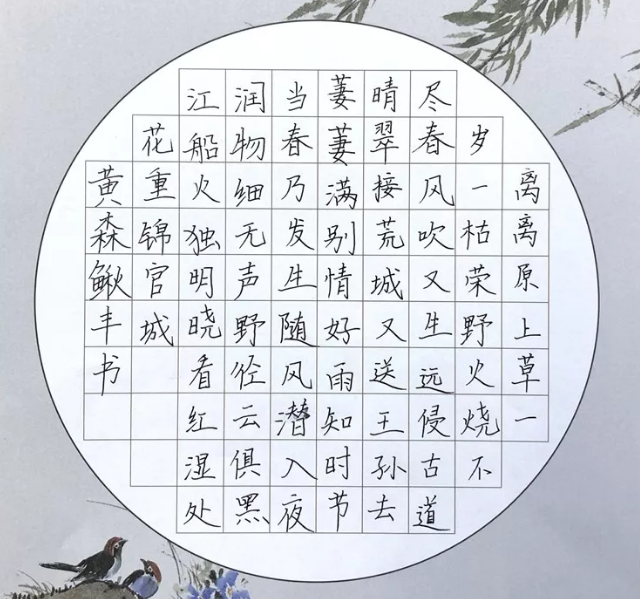 离离原上草一
岁一枯荣野火烧不
尽春风吹又生远侵古道
晴翠接荒城又送王孙去
萋萋满别情好雨知时节
当春乃发生随风潜入夜
润物细无声野径云俱黑
江船火独明晓看红湿处
花重锦官城
黄森鳅丰书